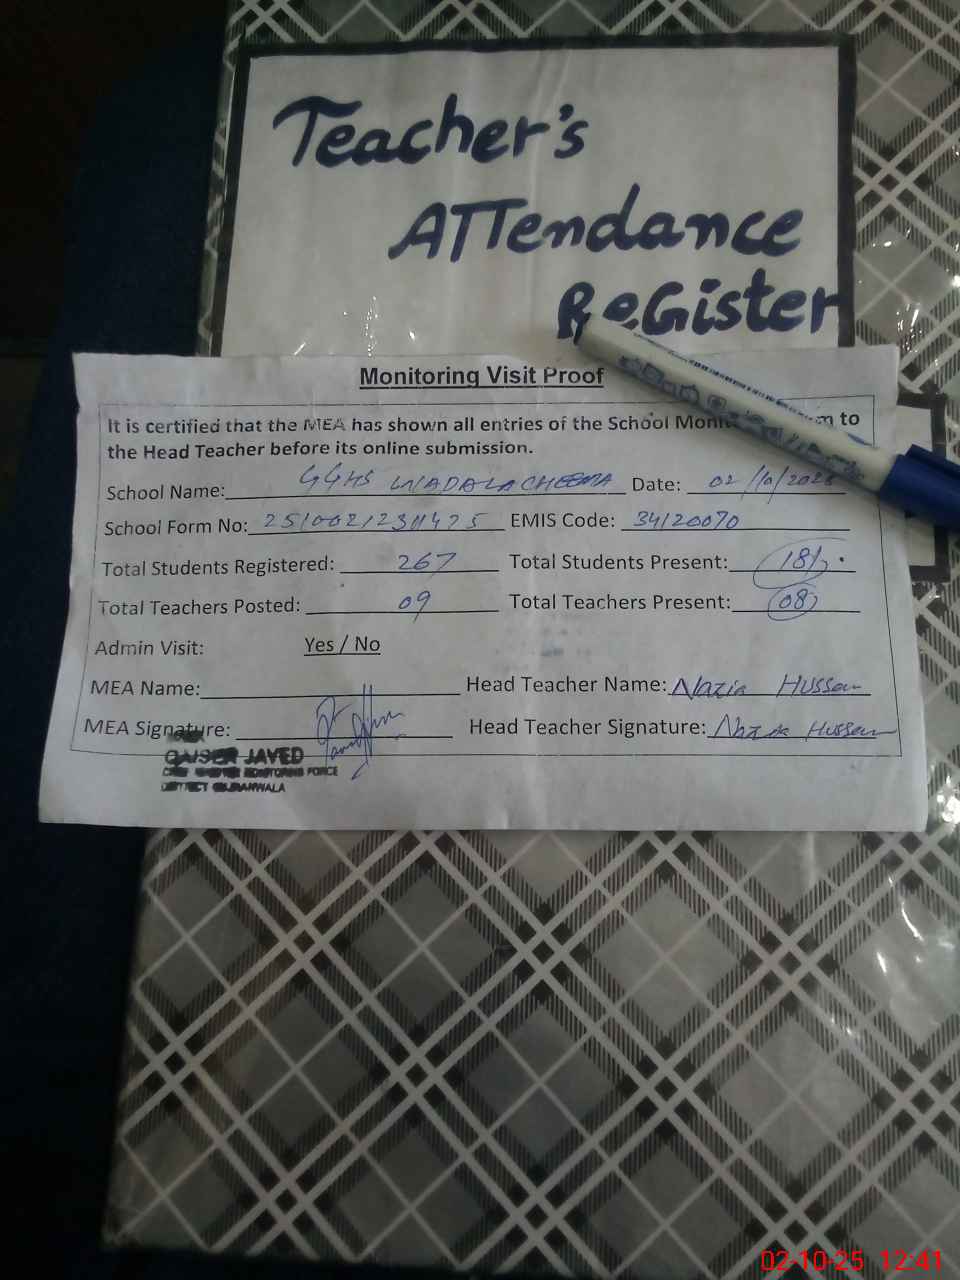 Teacher's
ATTendance
ReGister
Monitoring Visit Proof
It is certified that the MEA has shown all entries of the School to
the Head Teacher before its online submission.
School Name: GGHS WADALA CHEEMA Date: 02/10/2025
School Form No: EMIS Code: 34120070
Total Students Registered: 267 Total Students Present: 181
Total Teachers Posted: 09 Total Teachers Present: 08
Admin Visit: Yes / No
MEA Name: Head Teacher Name: Nazia Hussain
MEA Signature: Head Teacher Signature: Nazia Hussain
QAISER JAVED
MONITORING FORCE
DISTRICT GUJRANWALA
02-10-25 12:41